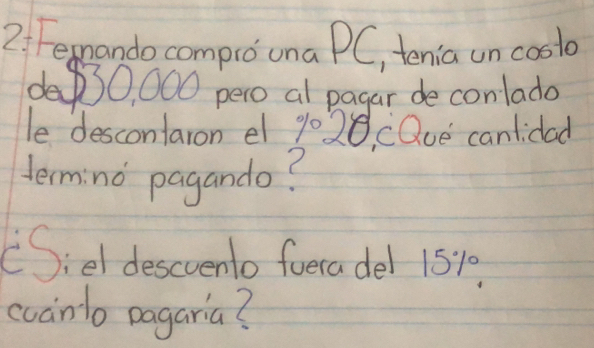 2: Fernando compró una PC, tenía un costo
de $30,000 pero al pagar de contado
le descontaron el %20, ¿Qué cantidad
terminó pagando?
¿Si el descuento fuera del 15%,
cuánto pagaría?